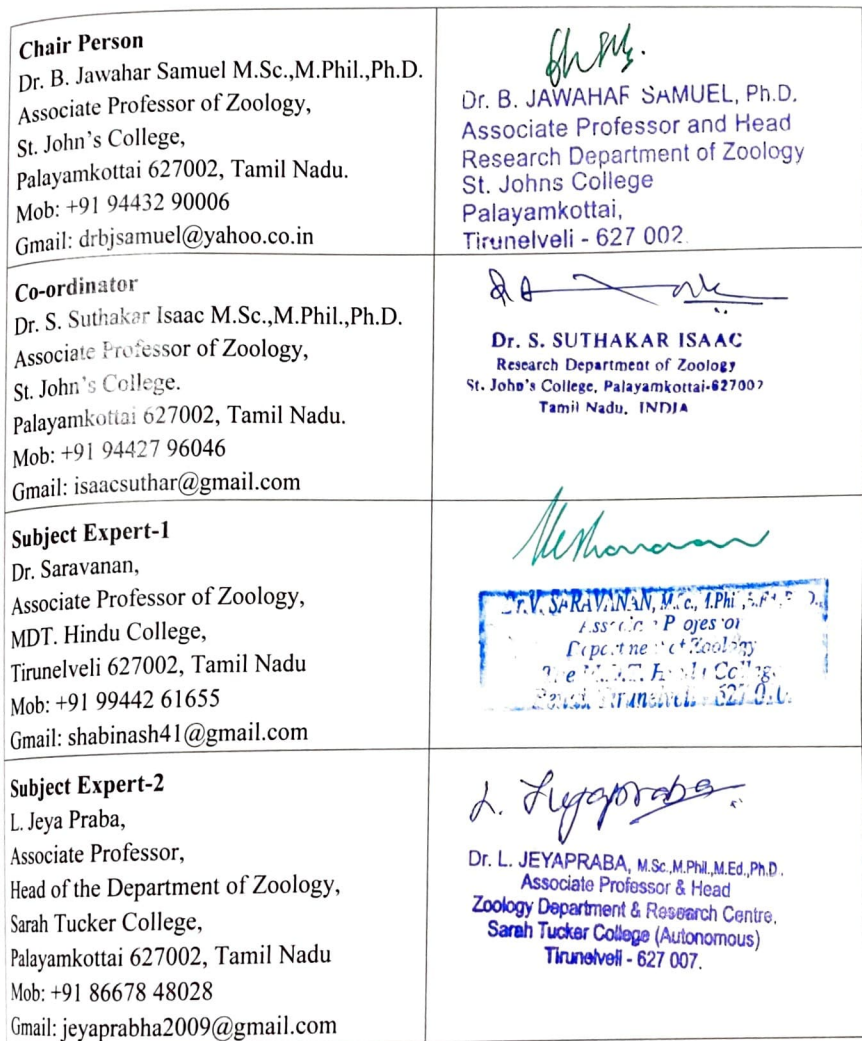 Chair Person
Dr. B. Jawahar Samuel M.Sc.,M.Phil.,Ph.D.
Associate Professor of Zoology,
St. John's College,
Palayamkottai 627002, Tamil Nadu.
Mob: +91 94432 90006
Gmail: drbjsamuel@yahoo.co.in
Dr. B. JAWAHAR SAMUEL, Ph.D.
Associate Professor and Head
Research Department of Zoology
St. Johns College
Palayamkottai,
Tirunelveli - 627 002.
Co-ordinator
Dr. S. Suthakar Isaac M.Sc.,M.Phil.,Ph.D.
Associate Professor of Zoology,
St. John's College.
Palayamkottai 627002, Tamil Nadu.
Mob: +91 94427 96046
Gmail: isaacsuthar@gmail.com
Dr. S. SUTHAKAR ISAAC
Research Department of Zoology
St. John's College, Palayamkottai-627002
Tamil Nadu, INDIA
Subject Expert-1
Dr. Saravanan,
Associate Professor of Zoology,
MDT. Hindu College,
Tirunelveli 627002, Tamil Nadu
Mob: +91 99442 61655
Gmail: shabinash41@gmail.com
Dr. V. SARAVANAN,
Associate Professor
Department of Zoology
Hindu College
Tirunelveli
Subject Expert-2
L. Jeya Praba,
Associate Professor,
Head of the Department of Zoology,
Sarah Tucker College,
Palayamkottai 627002, Tamil Nadu
Mob: +91 86678 48028
Gmail: jeyaprabha2009@gmail.com
L. Jeyapraba
Dr. L. JEYAPRABA, M.Sc.,M.Phil.,M.Ed.,Ph.D.
Associate Professor & Head
Zoology Department & Research Centre,
Sarah Tucker College (Autonomous)
Tirunelveli - 627 007.